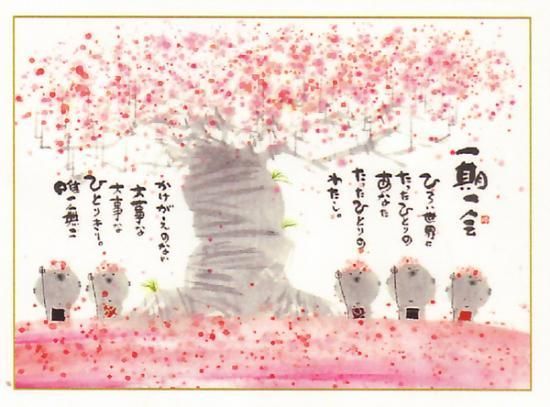 一期一会
ひろい世界に
たったひとりの
あなた
たったひとりの
わたし。
かけがえのない
大事な
大事な
ひとりきり。
唯一無二